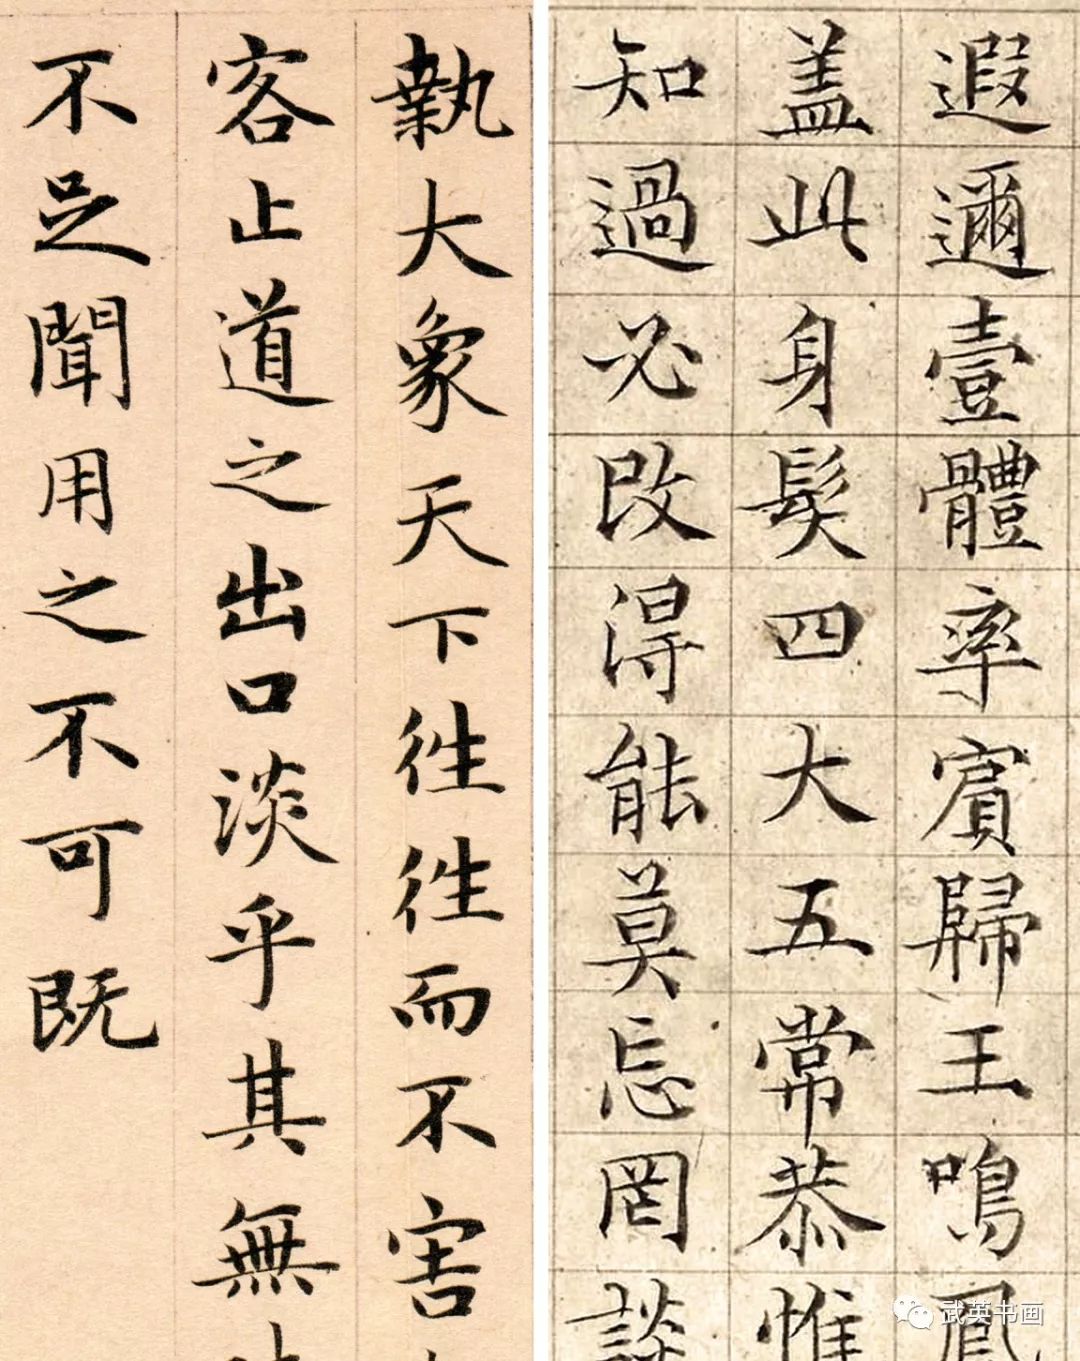 遐邇壹體率賓歸王鳴鳳
盖此身髮四大五常恭惟
知過必改得能莫忘罔談
執大象天下往往而不害
客止道之出口淡乎其無
不足聞用之不可既
武英书画